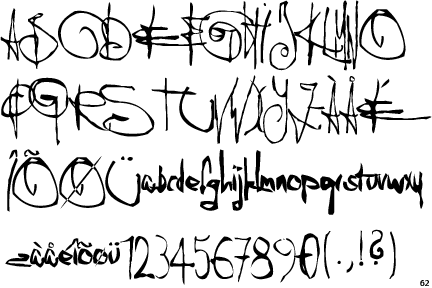 ABCDEFGHIJKLMNO
PQRSTUVWXYZÀÅÉ
ÎÕØÜabcdefghijklmnopqrstuvwxy
zàåéîõøü1234567890(.,!?)
62